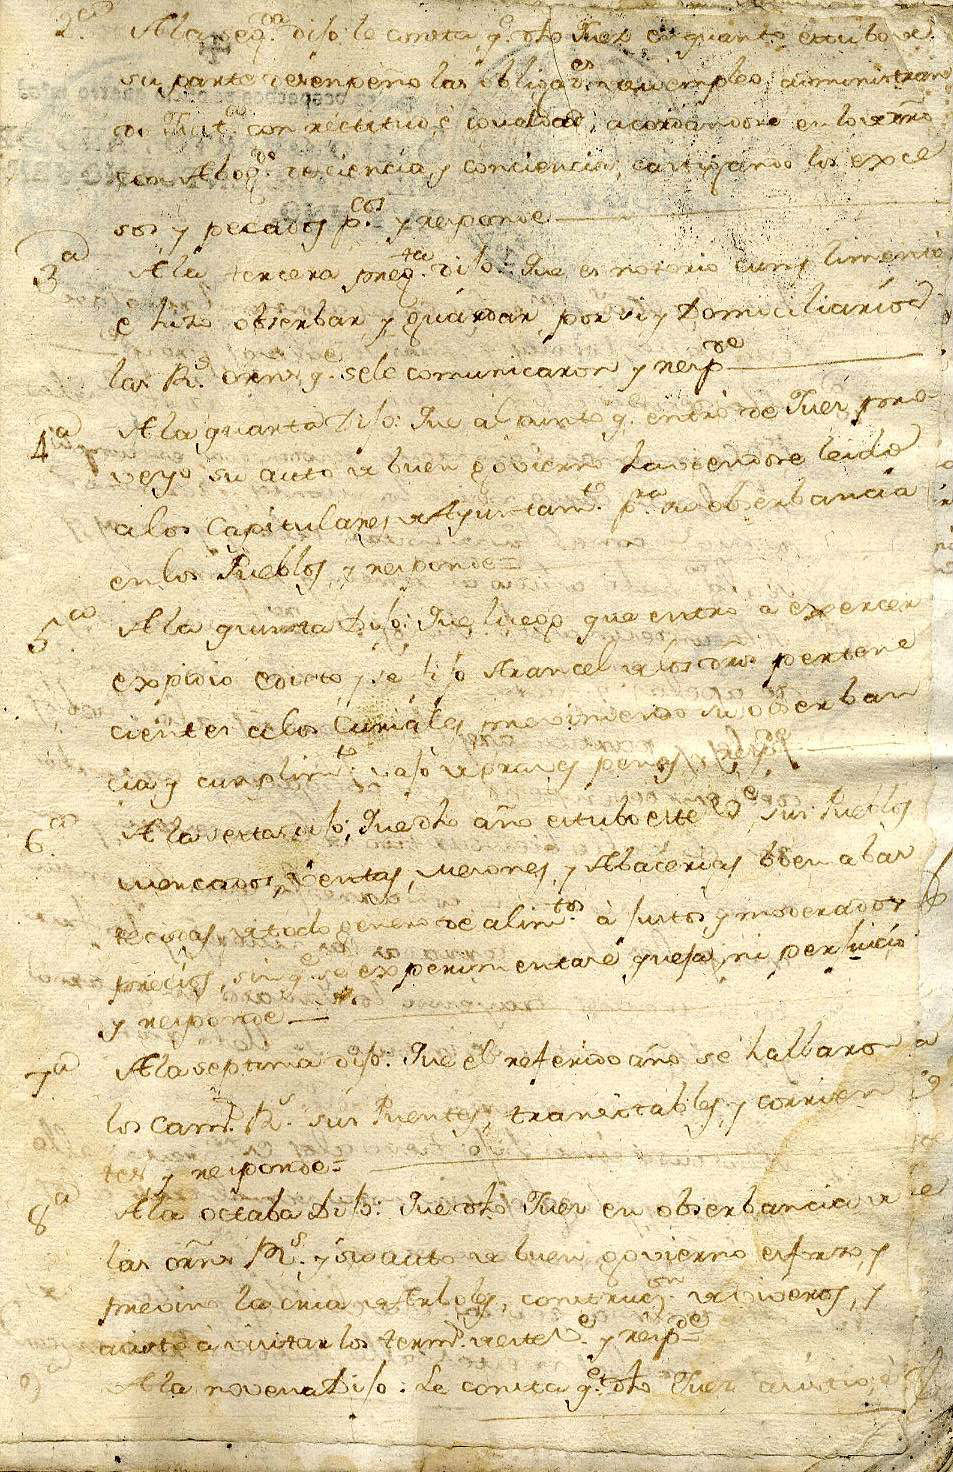 2.ª A la seg.da dijo: le consta q.e dho Juez en quanto estubo de
su parte desempeño las obligac.es de su empleo, administran
do Just.a con rectitud, é igualdad, acordandose en los term.
con Abog.do de ciencia, y conciencia, castigando los exce
sos y pecados p.cos y responde
3.ª A la tercera preg.ta dijo: Que es notorio cumplimentó
e hizo observar y guardar, por si y Domiciliarios
las R.s orns q.e se le comunicaron y resp.de
4.ª A la quarta Dijo: Que al punto q.e entró de Juez, pro
veyo su auto de buen govierno haviendose leido
a los Capitulares de Ayuntam.to p.ra su obserbancia
en los Pueblos, y responde=
5.ª A la quinta Dijo: Que luego que entró a exercer
expidio edicto, y se fijo Arancel de los dros pertene
cientes a los Curiales, previniendo su obserban
cia y cumplim.to vajo de graves penas, y resp.de
6.ª A la sexta dijo: Que dho año estubo este V.e, sus Pueblos
mercados, Ventas, Mesones, y Abacerias bien abas
tecidas de todo genero de alim.tos à justos y moderados
precios, sin q.e se experimentase quexa, ni perjuicio
y responde
7.ª A la septima dijo: Que el referido año se hallaron
los Cam.s R.s sus Puentes, transitables, y corrien
tes, y responde=
8.ª A la octaba Dijo: Que dho Juez en obserbancia de
las orns R.s y su auto de buen govierno esforzó, y
previno la cria de Arboles, construc.on de Viveros, y
asistió a visitar los term.s de este V.e y resp.de
9 A la novena Dijo: Le consta q.e dho Juez asistio à